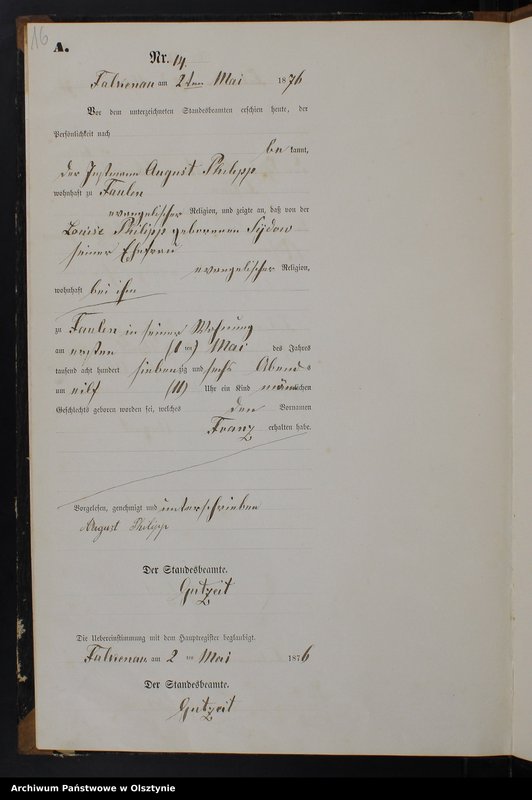 16
A.
Nr. 14.
Falkenau am 2ten Mai 1876
Vor dem unterzeichneten Standesbeamten erschien heute, der
Persönlichkeit nach
bekannt,
der Instmann August Philipp
wohnhaft zu Faulen
evangelischer Religion, und zeigte an, daß von der
Louise Philipp geborenen Sydow
seiner Ehefrau
evangelischer Religion,
wohnhaft bei ihm
zu Faulen in seiner Wohnung
am ersten (1 ten) Mai des Jahres
tausend acht hundert siebenzig und sechs Abends
um eilf (11) Uhr ein Kind männlichen
Geschlechts geboren worden sei, welches den Vornamen
Franz erhalten habe.
Vorgelesen, genehmigt und unterschrieben
August Philipp
Der Standesbeamte.
Gutzeit
Die Uebereinstimmung mit dem Hauptregister beglaubigt.
Falkenau am 2 ten Mai 1876
Der Standesbeamte.
Gutzeit
Archiwum Państwowe w Olsztynie